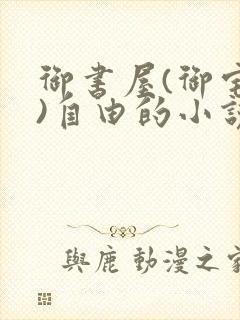 御書屋(御宅
)自由的小說
與鹿 動漫之家